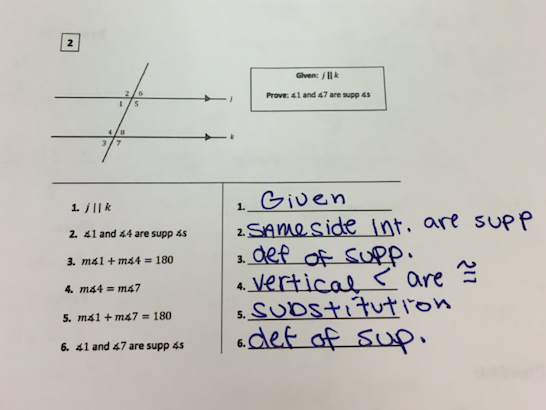 2
Given: j || k
Prove: ∡1 and ∡7 are supp ∡s
2 6
1 5
j
4 8
3 7
k
1. j || k
1. Given
2. ∡1 and ∡4 are supp ∡s
2. SAME side Int. are supp
3. m∡1 + m∡4 = 180
3. def of supp.
4. m∡4 = m∡7
4. vertical < are ≅
5. m∡1 + m∡7 = 180
5. substitution
6. ∡1 and ∡7 are supp ∡s
6. def of sup.